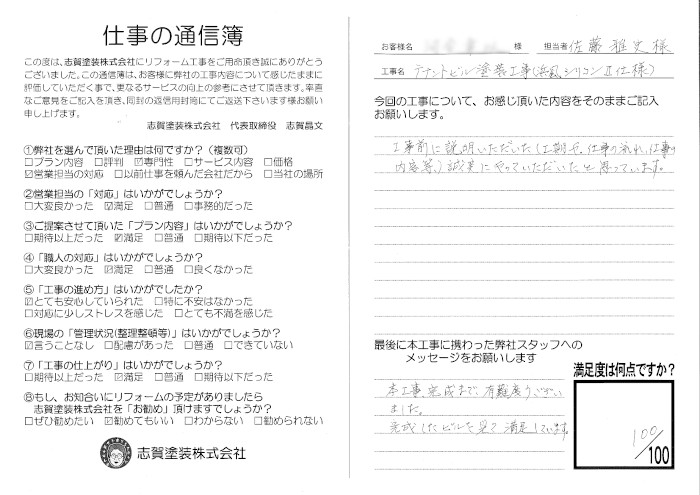 仕事の通信簿
この度は、志賀塗装株式会社にリフォーム工事をご用命頂き誠にありがとう
ございました。この通信簿は、お客様に弊社の工事内容について感じたままに
評価していただく事で、更なるサービスの向上の参考にさせて頂きます。率直
なご意見をご記入を頂き、同封の返信用封筒にてご返送下さいます様お願い
申し上げます。
志賀塗装株式会社 代表取締役 志賀晶文
①弊社を選んで頂いた理由は何ですか?(複数可)
□プラン内容 □評判 ☑専門性 □サービス内容 □価格
☑営業担当の対応 □以前仕事を頼んだ会社だから □当社の場所
②営業担当の「対応」はいかがでしょうか?
□大変良かった ☑満足 □普通 □事務的だった
③ご提案させて頂いた「プラン内容」はいかがでしょうか?
□期待以上だった ☑満足 □普通 □期待以下だった
④「職人の対応」はいかがでしょうか?
□大変良かった ☑満足 □普通 □良くなかった
⑤「工事の進め方」はいかがでしたか?
☑とても安心していられた □特に不安はなかった
□対応に少しストレスを感じた □とても不満を感じた
⑥現場の「管理状況(整理整頓等)」はいかがでしょうか?
☑言うことなし □配慮があった □普通 □できていない
⑦「工事の仕上がり」はいかがでしょうか?
□期待以上だった ☑満足 □普通 □期待以下だった
⑧もし、お知合いにリフォームの予定がありましたら
志賀塗装株式会社を「お勧め」頂けますでしょうか?
□ぜひ勧めたい ☑勧めてもいい □わからない □勧められない
志賀塗装株式会社
お客様名 様 担当者 佐藤 雅史 様
工事名 テナントビル塗装工事(浜風シリコンⅡ仕様)
今回の工事について、お感じ頂いた内容をそのままご記入
お願いします。
工事前に説明いただいた(工期や、仕事の流れ、仕事の
内容等、)誠実にやっていただいたと思っています。
最後に本工事に携わった弊社スタッフへの
メッセージをお願いします
本工事、完成まで有難うござい
ました。
完成したビルを見て満足しています。
満足度は何点ですか?
100/100